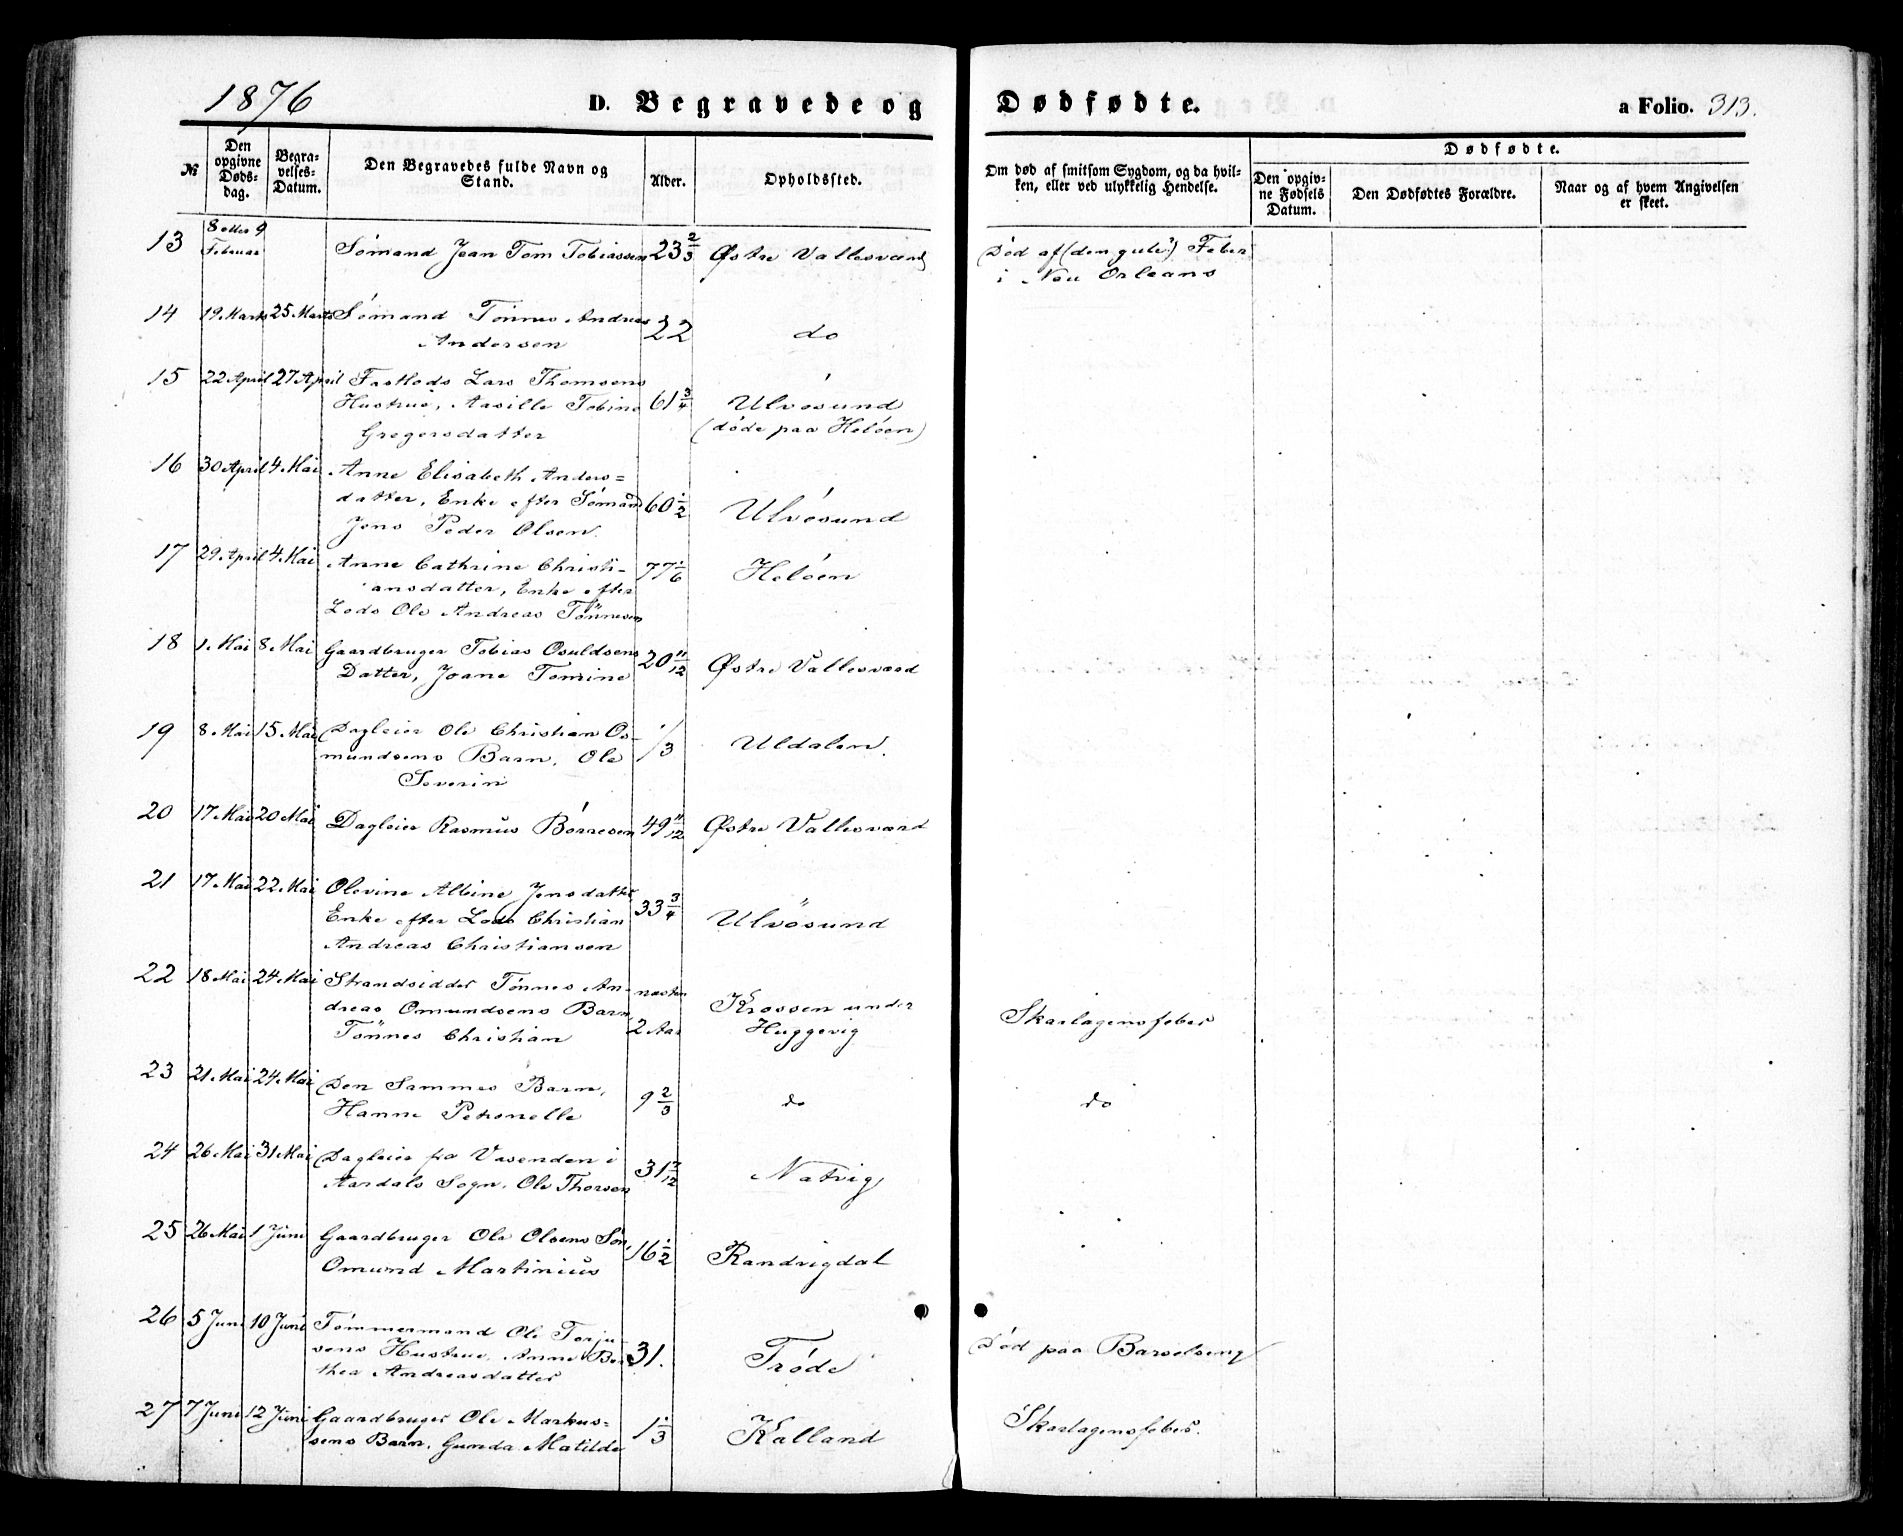 1876
D. Begravede og Dødfødte. a Folio. 313.
№
Den opgivne Døds-dag.
Begra-velses-Datum.
Den Begravedes fulde Navn og Stand.
Alder.
Opholdssted.
Om død af smitsom Sygdom, og da hvil-
ken, eller ved ulykkelig Hendelse.
Dødfødte.
Den opgiv-ne Fødsels Datum.
Den Dødfødtes Forældre.
Naar og af hvem Angivelsen er skeet.
13 8 eller 9 Februar Sømand Jean Tom Tobiassen 23 2/3 Østre Vallesværd Død af (den gule?) Feber
i Neu Orleans
14 19 Marts 25 Marts Sømand Tønnes Andreas 22 do
Andersen
15 22 April 27 April Fastlods Lars Thomsens 61 3/4 Ulvøsund
Hustrue, Aasille Tobine (døde paa Heløen)
Gregersdatter
16 30 April 4 Mai Anne Elisabeth Anders=
datter, Enke efter Sømand 60 1/2 Ulvøsund
Jens Peder Olsen.
17 29 April 4 Mai Anne Cathrine Christi- 77 1/6 Heløen
ansdatter, Enke efter
Lods Ole Andreas Tönnesen
18 1 Mai 8 Mai Gaardbruger Tobias Osuldsens 20 11/12 Østre Vallesværd
Datter, Joane Tomine
19 8 Mai 15 Mai Dagleier Ole Christian Os- 1/3 Uldalen.
mundsens Barn, Ole
Severin
20 17 Mai 20 Mai Dagleier Rasmus Børresen 49 11/12 Østre Vallesværd
21 17 Mai 22 Mai Olevine Albine Jensdatter 33 3/4 Ulvösund
Enke efter Lods Christian
Andreas Christiansen
22 18 Mai 24 Mai Strandsidder Tønnes An- næsten 2 Aar Krossen under Huggevig Skarlagensfeber
dreas Omundsens Barn
Tönnes Christian
23 21 Mai 24 Mai Den Sammes Barn, 9 2/3 do do
Hanne Petronelle
24 26 Mai 31 Mai Dagleier fra Vasenden i 31 Natvig
Aardals Sogn, Ole Thorsen
25 26 Mai 1 Juni Gaardbruger Ole Olsens Søn, 16 1/2 Randvigdal
Omund Martinius
26 5 Juni 10 Juni Tømmermand Ole Terju- 31. Trøde Død paa Barselseng
sens Hustrue, Anne Ber-
thea Andreasdatter
27 7 Juni 12 Juni Gaardbruger Ole Markus= 1 1/3 Kalland Skarlagensfeber.
sens Barn, Gunda Matilde